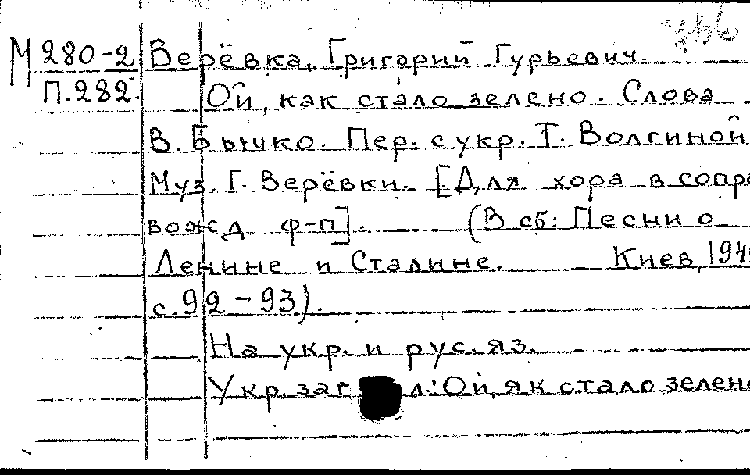 М 280-2 Верёвка, Григорий Гурьевич
П.282. Ой, как стало зелено. Слова
В. Бычко. Пер. с укр. Т. Волгиной
Муз. Г. Верёвки. [Для хора в сопро
вожд ф-п]. (В сб: Песни о
Ленине и Сталине. Киев, 194
с. 92-93).
На укр. и рус. яз.
Укр заг л: Ой, як стало зелен